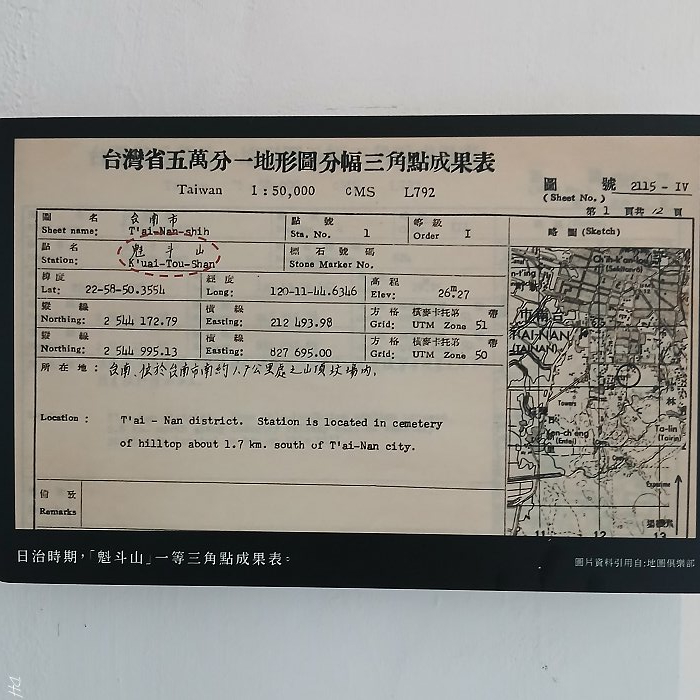 台灣省五萬分一地形圖分幅三角點成果表
Taiwan 1:50,000 CMS L792
圖 號 2115 - IV
(Sheet No.)
第 1 頁共 12 頁
圖 名 台南市
Sheet name: T'ai-Nan-shih
點 號
Sta. No. 1
等 級
Order I
略 圖 (Sketch)
點 名 魁斗山
Station: K'uai-Tou-Shan
標 石 號 碼
Stone Marker No.
緯度
Lat: 22-58-50.3554
經 度
Long: 120-11-44.6346
高 程
Elev: 26.m27
縱 線
Northing: 2 544 172.79
橫 線
Easting: 212 493.98
方 格 橫麥卡托第 帶
Grid: UTM Zone 51
縱 線
Northing: 2 544 995.13
橫 線
Easting: 827 695.00
方 格 橫麥卡托第 帶
Grid: UTM Zone 50
所 在 地: 台南、位於台南市南約1.7公里處之山頂墳場內。
Location : T'ai - Nan district. Station is located in cemetery
of hilltop about 1.7 km. south of T'ai-Nan city.
備 攷
Remarks
市南台
(TAINAN)
Towers
Ta-lin
(Tairin)
11
12
13
日治時期，「魁斗山」一等三角點成果表。
圖片資料引用自:地圖俱樂部